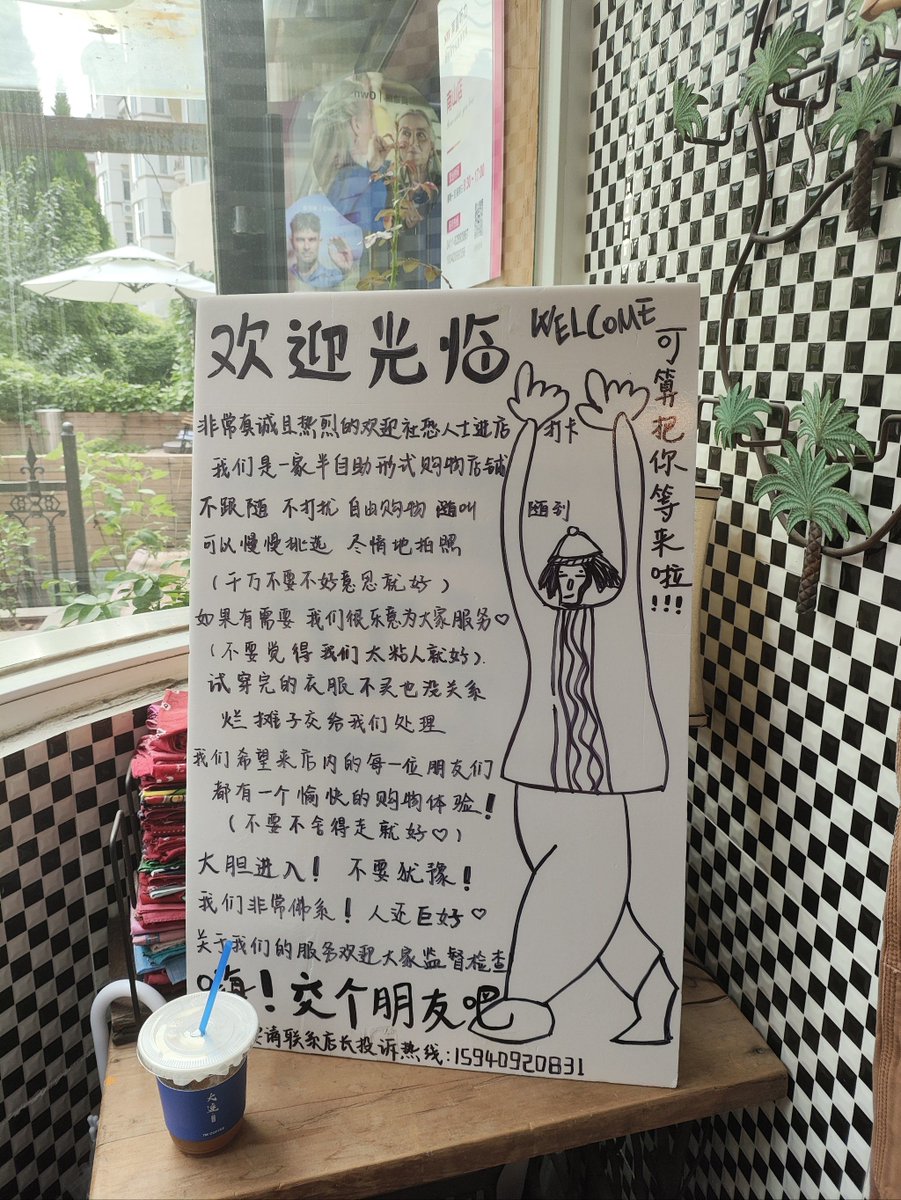 欢迎光临
WELCOME
可算把你等来啦!!!
非常真诚且热烈的欢迎社恐人士进店打卡
我们是一家半自助形式购物店铺
不跟随 不打扰 自由购物 随叫随到
可以慢慢挑选 尽情地拍照
(千万不要不好意思就好)
如果有需要 我们很乐意为大家服务♡
(不要觉得我们太粘人就好).
试穿完的衣服不买也没关系
烂摊子交给我们处理
我们希望来店内的每一位朋友们
都有一个愉快的购物体验!
(不要不舍得走就好♡)
大胆进入! 不要犹豫!
我们非常佛系! 人还巨好♡
关于我们的服务欢迎大家监督检查
嗨!交个朋友吧
请联系店长投诉热线:15940920831
大连
南山店
8:30-17:00